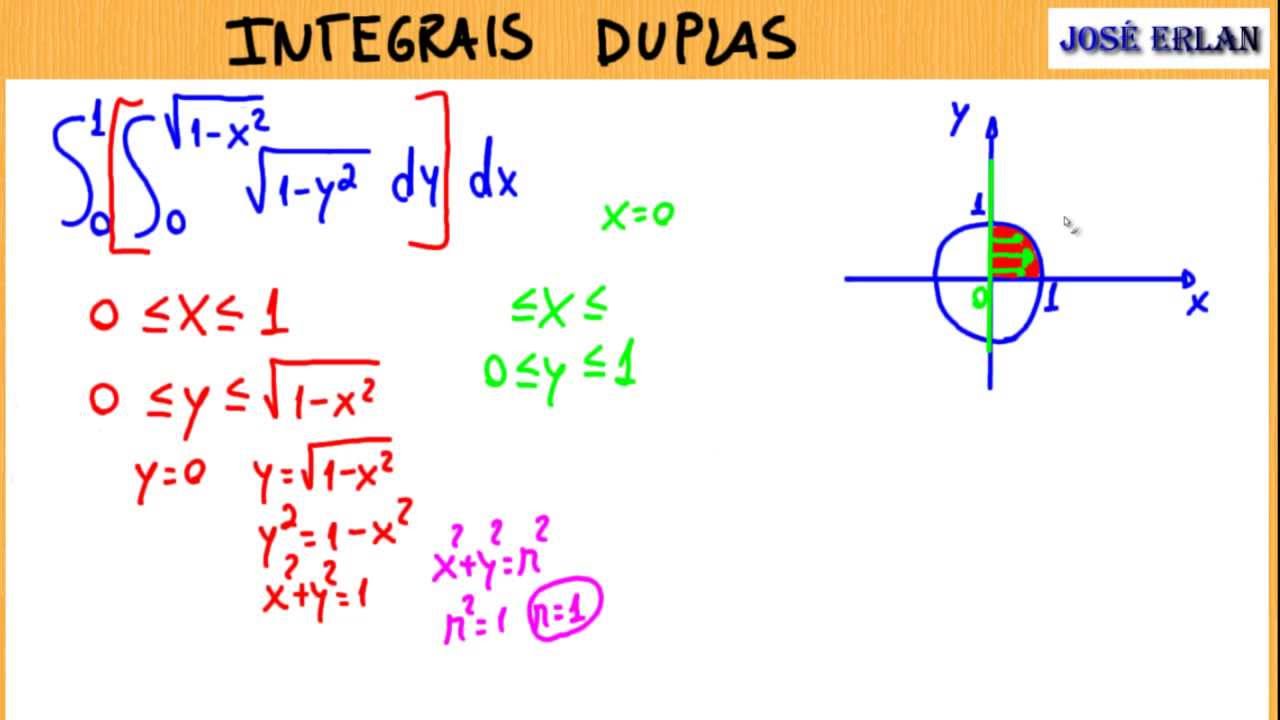 INTEGRAIS DUPLAS
JOSÉ ERLAN
∫₀¹ [∫₀^√(1-x²) √(1-y²) dy] dx
x=0
0 ≤ x ≤ 1
0 ≤ y ≤ √(1-x²)
y=0 y=√(1-x²)
y²=1-x²
x²+y²=1
≤ x ≤
0 ≤ y ≤ 1
x²+y²=r²
r²=1 r=1
y
1
0 1
x